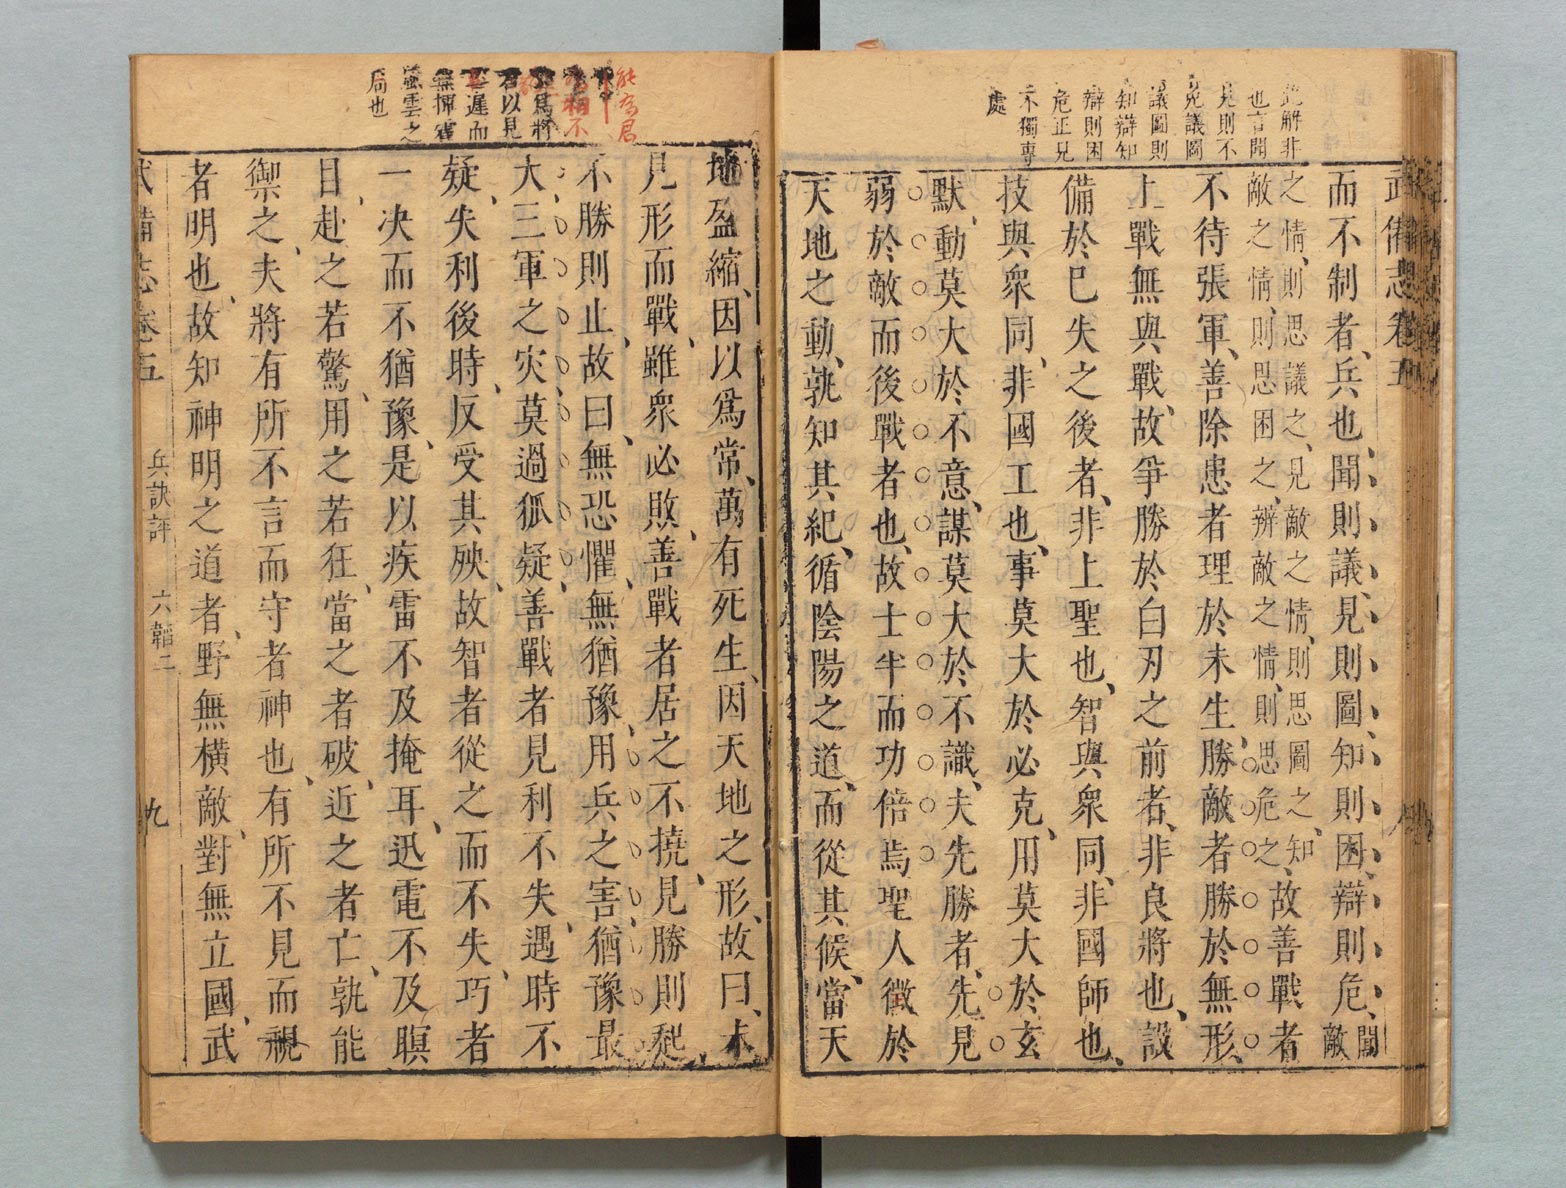 武備志卷五
而不制者兵也聞則議見則圖知則困辯則危聞敵
之情則思議之見敵之情則思圖之知
敵之情則思困之辨敵之情則思危之故善戰者
不待張軍善除患者理於未生勝敵者勝於無形
上戰無與戰故爭勝於白刃之前者非良將也設
備於已失之後者非上聖也智與衆同非國師也
技與衆同非國工也事莫大於必克用莫大於玄
默動莫大於不意謀莫大於不識夫先勝者先見
弱於敵而後戰者也故士半而功倍焉聖人徵於
天地之動孰知其紀循陰陽之道而從其候當天
也言聞
見則不
免議圖
議圖則
知辯知
辯則困
危正見
不獨專
處
地盈縮因以爲常萬有死生因天地之形故曰未
見形而戰雖衆必敗善戰者居之不撓見勝則起
不勝則止故曰無恐懼無猶豫用兵之害猶豫最
大三軍之灾莫過狐疑善戰者見利不失遇時不
疑失利後時反受其殃故智者從之而不失巧者
一決而不猶豫是以疾雷不及掩耳迅電不及瞑
目赴之若驚用之若狂當之者破近之者亡孰能
禦之夫將有所不言而守者神也有所不見而視
者明也故知神明之道者野無橫敵對無立國武
能爲君
爲將
君以見
遲而
風雲之
局也
武備志卷五 兵訣評 六韜二 九